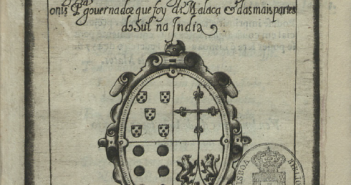 governador que foy de Malaca & das mais partes
do Sul na India
LISBOA